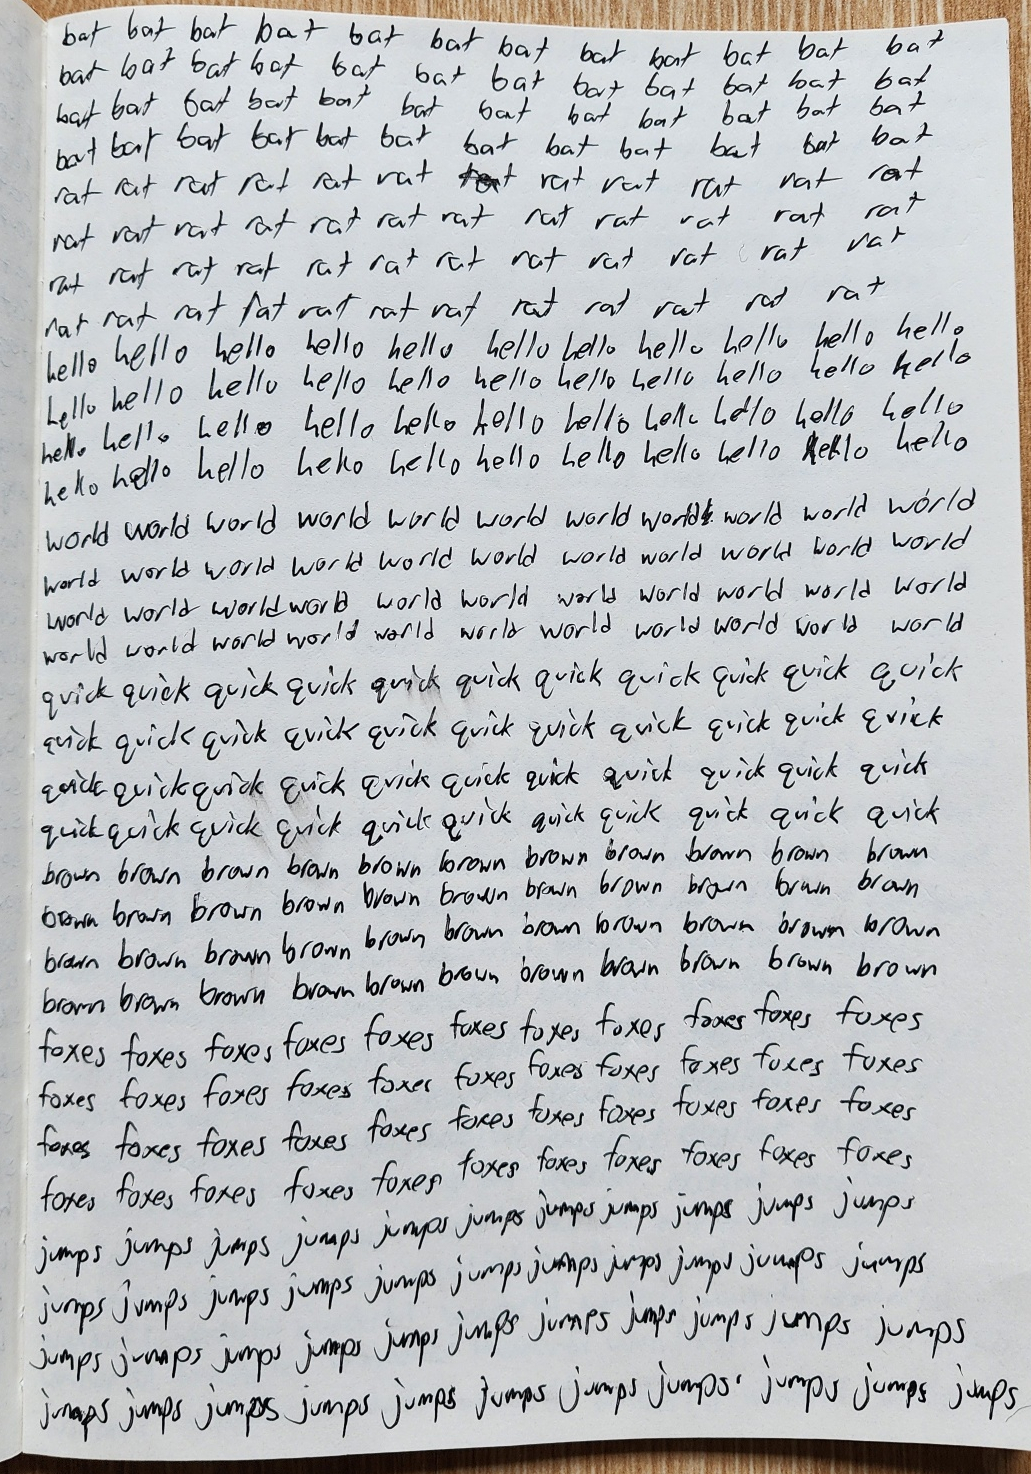 bat bat bat bat bat bat bat bat bat bat bat bat
bat bat bat bat bat bat bat bat bat bat bat bat
bat bat bat bat bat bat bat bat bat bat bat bat
bat bat bat bat bat bat bat bat bat bat bat bat
rat rat rat rat rat rat rat rat rat rat rat
rat rat rat rat rat rat rat rat rat rat rat rat
rat rat rat rat rat rat rat rat rat rat rat rat
rat rat rat rat rat rat rat rat rat rat rat rat
hello hello hello hello hello hello hello hello hello hello hello
hello hello hello hello hello hello hello hello hello hello hello
hello hello hello hello hello hello hello hello hello hello hello
hello hello hello hello hello hello hello hello hello hello hello
world world world world world world world world world world world
world world world world world world world world world world world
world world world world world world world world world world world
world world world world world world world world world world world
quick quick quick quick quick quick quick quick quick quick quick
quick quick quick quick quick quick quick quick quick quick quick
quick quick quick quick quick quick quick quick quick quick quick
quick quick quick quick quick quick quick quick quick quick quick
brown brown brown brown brown brown brown brown brown brown brown
brown brown brown brown brown brown brown brown brown brown brown
brown brown brown brown brown brown brown brown brown brown brown
brown brown brown brown brown brown brown brown brown brown brown
foxes foxes foxes foxes foxes foxes foxes foxes foxes foxes foxes
foxes foxes foxes foxes foxes foxes foxes foxes foxes foxes foxes
foxes foxes foxes foxes foxes foxes foxes foxes foxes foxes foxes
foxes foxes foxes foxes foxes foxes foxes foxes foxes foxes foxes
jumps jumps jumps jumps jumps jumps jumps jumps jumps jumps jumps
jumps jumps jumps jumps jumps jumps jumps jumps jumps jumps jumps
jumps jumps jumps jumps jumps jumps jumps jumps jumps jumps jumps
jumps jumps jumps jumps jumps jumps jumps jumps jumps jumps jumps